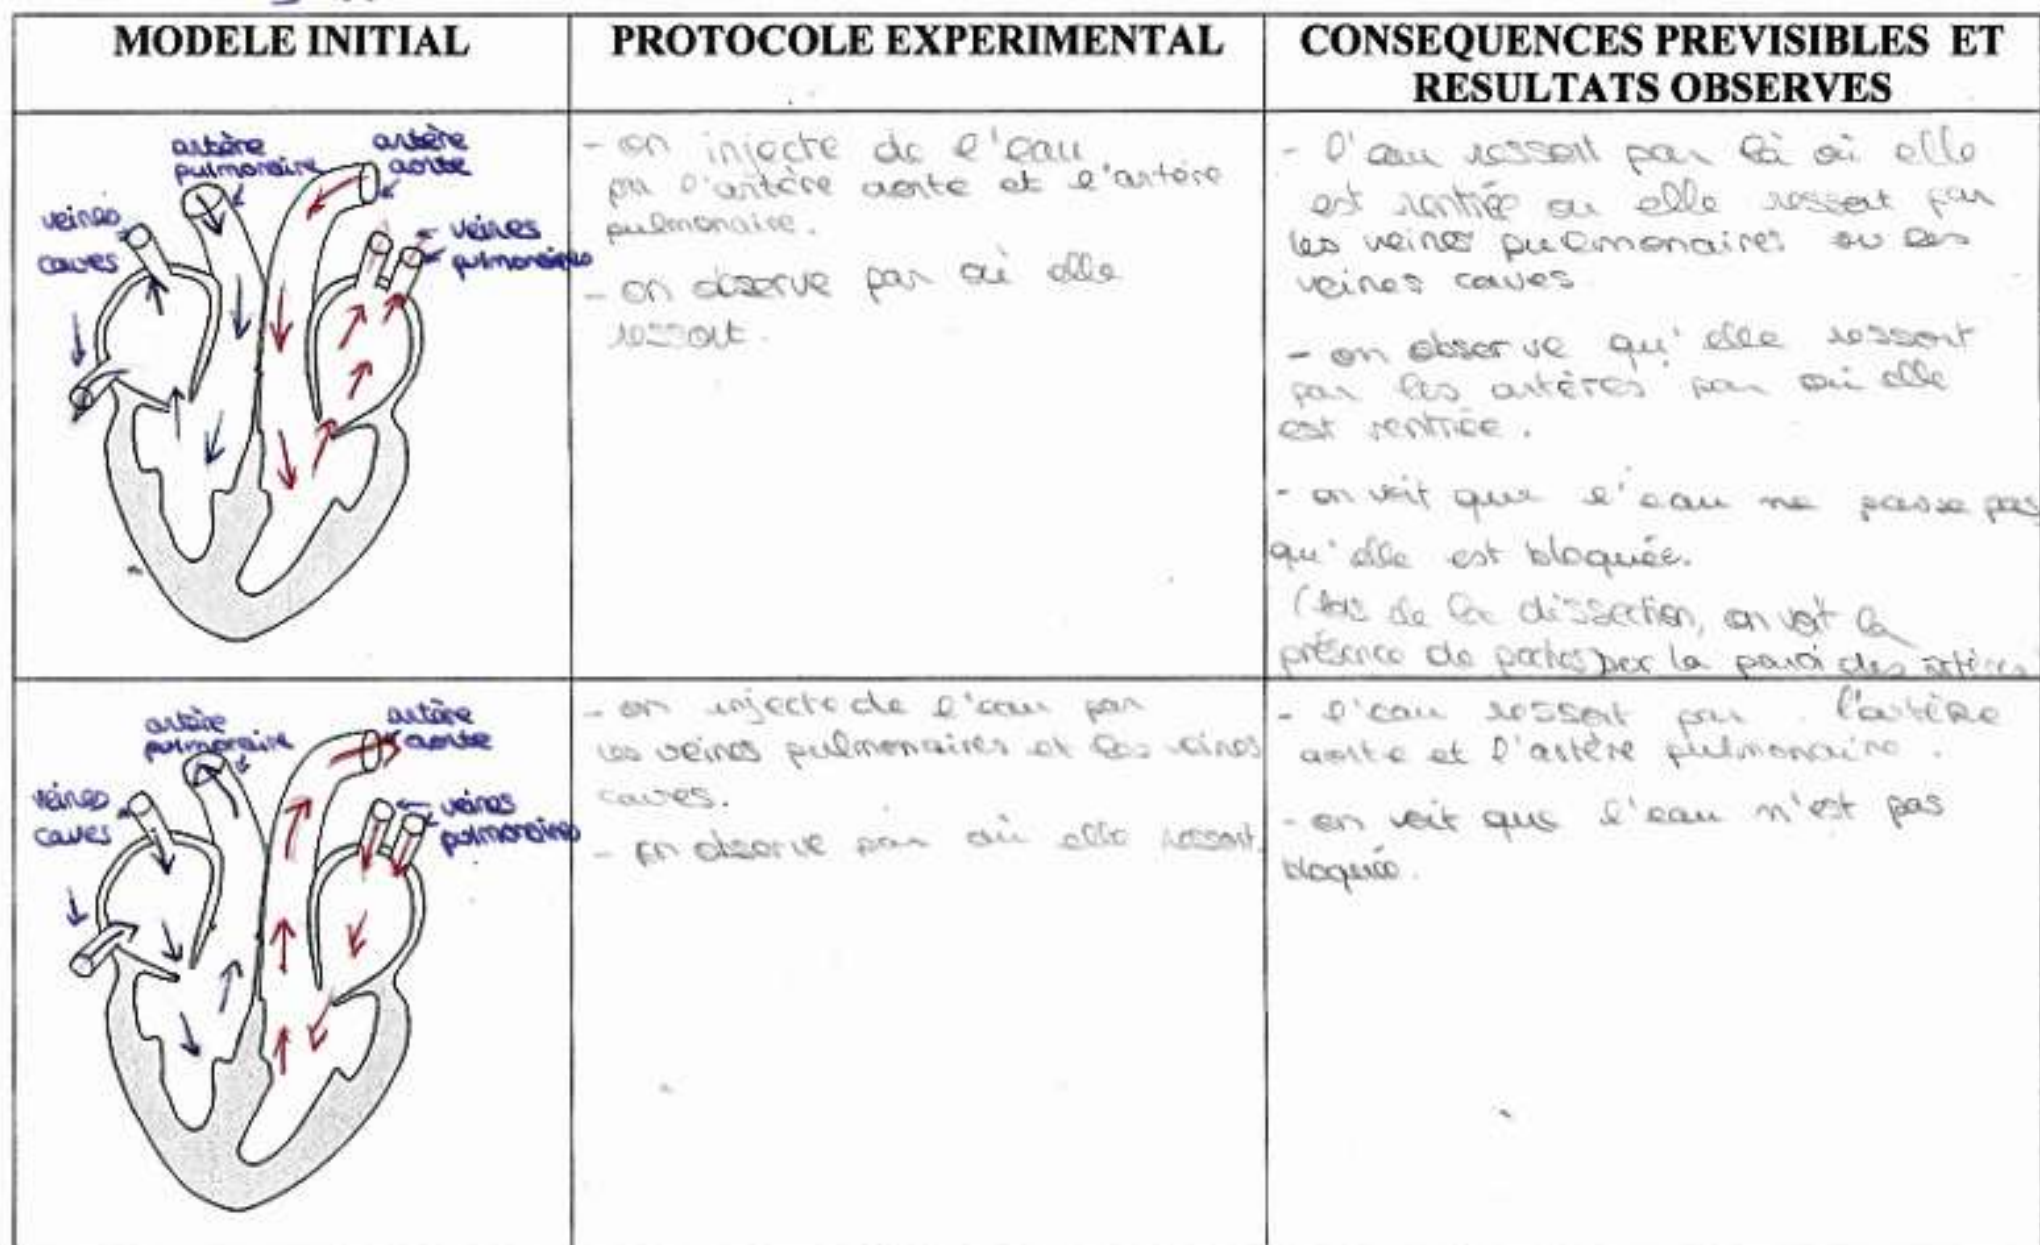 MODELE INITIAL
PROTOCOLE EXPERIMENTAL
CONSEQUENCES PREVISIBLES ET
RESULTATS OBSERVES
artère
pulmonaire
artère
aorte
veines
caves
veines
pulmonaires
- on injecte de l'eau
par l'artère aorte et l'artère
pulmonaire.
- on observe par où elle
ressort.
- l'eau ressort par là où elle
est rentrée ou elle ressort par
les veines pulmonaires ou les
veines caves
- on observe qu'elle ressort
par les artères par où elle
est rentrée.
- on voit que l'eau ne passe pas
qu'elle est bloquée.
(lors de la dissection, on voit la
présence de poches sur la paroi des artères
artère
pulmonaire
artère
aorte
veines
caves
veines
pulmonaires
- on injecte de l'eau par
les veines pulmonaires et les veines
caves.
- on observe par où elle ressort.
- l'eau ressort par l'artère
aorte et l'artère pulmonaire.
- on voit que l'eau n'est pas
bloquée.